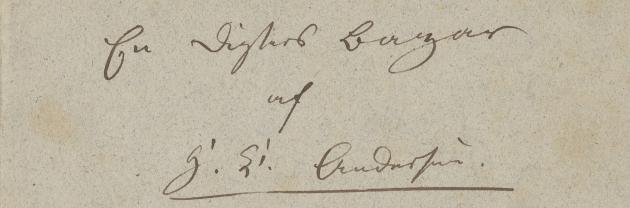 En Digters Bazar
af
H. C. Andersen.